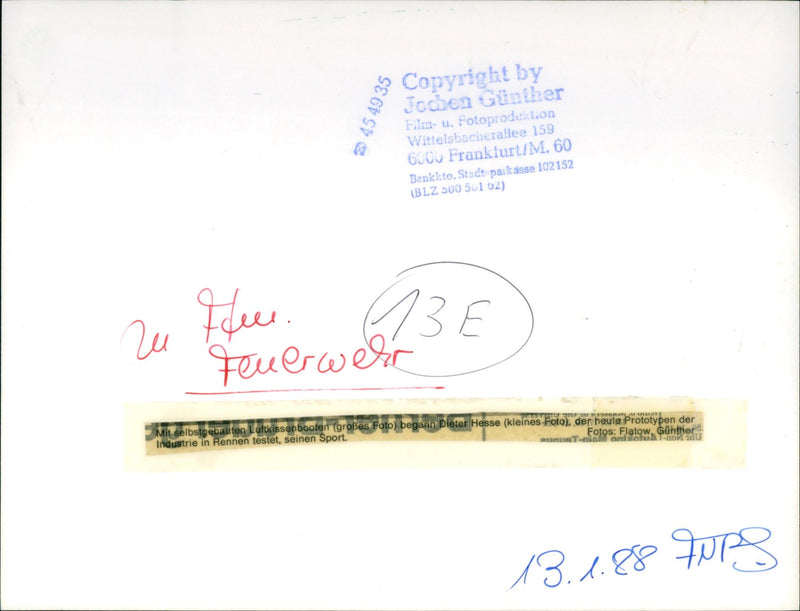 ☎ 45 49 35
Copyright by
Jochen Günther
Film- u. Fotoproduktion
Wittelsbacherallee 159
6000 Frankfurt/M. 60
Bankkto. Stadtsparkasse 102152
(BLZ 500 501 02)
13 E
Feuerwehr
Mit selbstgebauten Luftkissenbooten (großes Foto) begann Dieter Hesse (kleines Foto), der heute Prototypen der
Industrie in Rennen testet, seinen Sport.
Fotos: Flatow, Günther
13.1.88